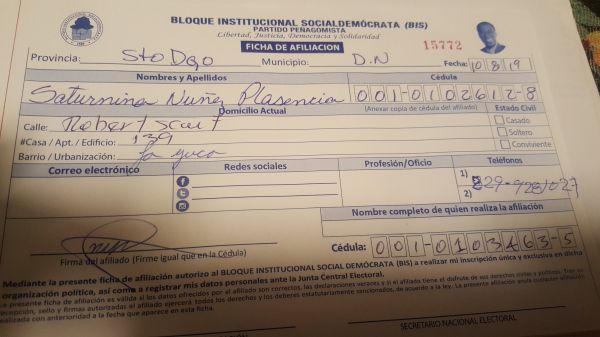 BLOQUE INSTITUCIONAL SOCIALDEMÓCRATA (BIS)
PARTIDO PEÑAGOMISTA
Libertad, Justicia, Democracia y Solidaridad
FICHA DE AFILIACION 15772
Provincia: Sto Dgo Municipio: D.N Fecha: 10/8/19
Nombres y Apellidos Cédula
Saturnina Nuñez Plasencia 001-0102612-8
Domicilio Actual (Anexar copia de cédula del afiliado) Estado Civil
Calle: Robert Scout Casado
#Casa / Apt. / Edificio: 139 Soltero
Barrio / Urbanización: La yuca Conviviente
Correo electrónico Redes sociales Profesión/Oficio Teléfonos
1) 829-9281027
2)
Nombre completo de quien realiza la afiliación
Firma del afiliado (Firme igual que en la Cédula) Cédula: 001-0103463-5
Mediante la presente ficha de afiliación autorizo al BLOQUE INSTITUCIONAL SOCIAL DEMÓCRATA (BIS) a realizar mi inscripción única y exclusiva en dicha
organización política, así como a registrar mis datos personales ante la Junta Central Electoral.
La presente ficha de afiliación es válida si los datos ofrecidos por el afiliado son correctos, las declaraciones veraces y si el afiliado tiene el disfrute de sus derechos civiles y políticos. Tras su
recepción, sello y firmas autorizadas el afiliado ejercerá todos los derechos y los deberes estatutariamente sancionados, de acuerdo a la ley. La presente afiliación anula cualquier afiliación
realizada con anterioridad a la fecha que aparece en esta ficha.
SECRETARIO NACIONAL ELECTORAL